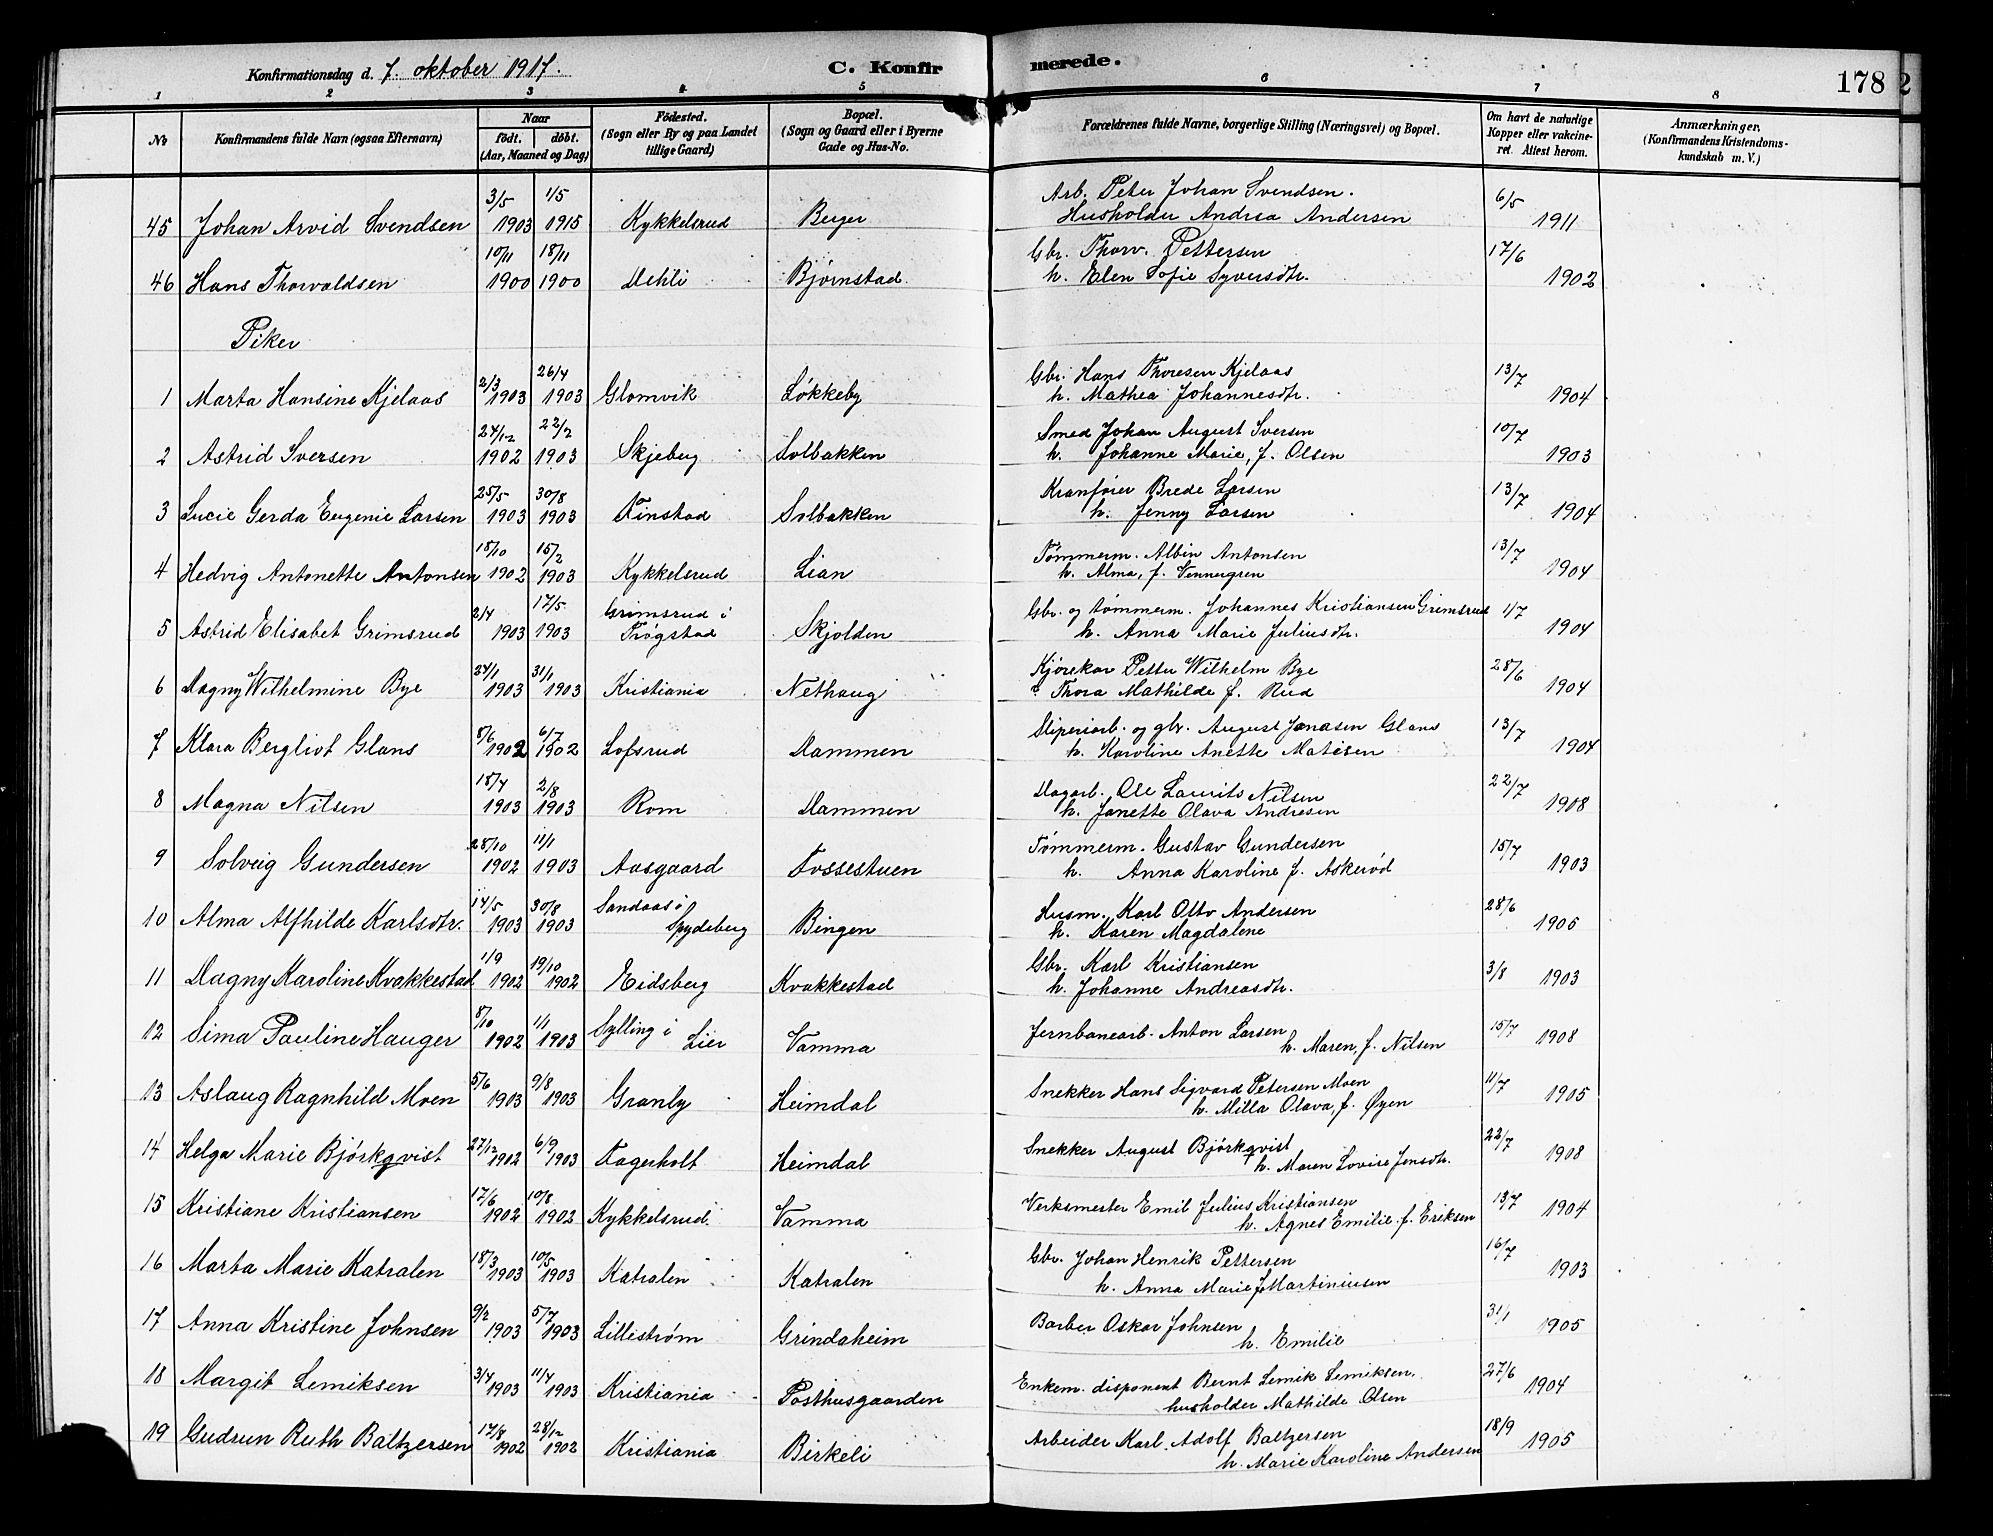 Konfirmationsdag d. 7. oktober 1917. C. Konfirmerede. 178
1 2 3 4 5 6 7 8
No Konfirmandens fulde Navn (ogsaa Efternavn) Naar født. døbt. (Aar, Maaned og Dag) Fødested. (Sogn eller By og paa Landet tillige Gaard) Bopæl. (Sogn og Gaard eller i Byerne Gade og Hus-No. Forældrenes fulde Navne, borgerlige Stilling (Næringsvei) og Bopæl. Om havt de naturlige Kopper eller vakcineret. Attest herom. Anmærkninger. (Konfirmandens Kristendomskundskab m. V.)
45 Johan Arvid Svendsen 3/5 1903 1/5 1915 Kykkelsrud Berger Arb. Peter Johan Svendsen. 6/5 1911
Husholder Andrea Andersen
46 Hans Thorvaldsen 10/11 1900 18/11 1900 Dehli Bjørnstad Gbr. Thorv. Pettersen 17/6 1902
h. Elen Sofie Syversdtr.
Piker
1 Marta Hansine Kjelaas 2/3 1903 26/4 1903 Glomvik Løkkeby Gbr. Hans Thoresen Kjelaas 13/7 1904
h. Mathea Johannesdtr.
2 Astrid Iversen 24/12 1902 22/2 1903 Skjeberg Solbakken Smed Johan August Iversen 10/7 1903
h. Johanne Marie, f. Olsen
3 Lucie Gerda Eugenie Larsen 25/5 1903 30/8 1903 Finstad Solbakken Kranfører Brede Larsen 13/7 1904
h. Jenny Larsen
4 Hedvig Antonette Antonsen 18/10 1902 15/2 1903 Kykkelsrud Lian Tømmerm. Albin Antonsen 13/7 1904
h. Alma, f. Vennergren
5 Astrid Elisabet Grimsrud 2/4 1903 17/5 1903 Grimsrud i Trøgstad Skjolden Gbr. og tømmerm. Johannes Kristiansen Grimsrud 1/7 1904
h. Anna Marie Juliusdtr.
6 Dagny Wilhelmine Bye 24/1 1903 31/1 1903 Kristiania Nethaug Kjørekar Petter Wilhelm Bye 28/6 1904
Thora Mathilde f. Rud
7 Klara Bergliot Glans 8/6 1902 6/7 1902 Lofsrud Dammen Sliperiarb. og gbr. August Jonasen Glans 13/7 1904
h. Karoline Anette Matisen
8 Magna Nilsen 18/4 1903 2/8 1903 Rom Dammen Dagarb. Ole Laurits Nilsen 22/7 1908
h. Janette Olava Andresen
9 Solveig Gundersen 28/10 1902 11/1 1903 Aasgaard Fossestuen Tømmerm. Gustav Gundersen 15/7 1903
h. Anna Karoline f. Askerød
10 Alma Alfhilde Karlsdtr. 14/5 1903 30/8 1903 Sandaas i Spydeberg Bingen Husm. Karl Otto Andersen 28/6 1906
h. Karen Magdalene
11 Dagny Karoline Kvakkestad 1/9 1902 19/10 1902 Eidsberg Kvakkestad Gbr. Karl Kristiansen 3/8 1903
h. Johanne Andreasdtr.
12 Sima Pauline Hauger 8/10 1902 1/1 1903 Sylling i Lier Vamma Jernbanearb. Anton Larsen 15/7 1908
h. Maren, f. Nilsen
13 Aslaug Ragnhild Moen 5/6 1903 9/8 1903 Granly Heimdal Snekker Hans Sigvard Petersen Moen 11/7 1905
h. Milla Olava, f. Øyen
14 Helga Marie Bjørkqvist 27/12 1902 6/9 1903 Fagerholt Heimdal Snekker August Bjørkqvist 22/7 1908
h. Maren Lovise Jensdtr.
15 Kristiane Kristiansen 17/6 1902 10/8 1902 Kykkelsrud Vamma Verksmester Emil Julius Kristiansen 13/7 1904
h. Agnes Emilie f. Eriksen
16 Marta Marie Katralen 18/3 1903 10/5 1903 Katralen Katralen Gbr. Johan Henrik Pettersen 16/7 1903
h. Anna Marie f. Martiniusen
17 Anna Kristine Johnsen 9/2 1903 5/7 1903 Lillestrøm Grindaheim Barber Oskar Johnsen 31/1 1905
h. Emilie
18 Margit Lemiksen 3/4 1903 11/4 1903 Kristiania Posthusgaarden Enkem. disponent Bernt Lemik Lemiksen. 27/6 1904
husholder Mathilde Olsen
19 Gudrun Ruth Baltzersen 17/8 1902 28/12 1902 Kristiania Birkeli Arbeider Karl Adolf Baltzersen 18/9 1905
h. Marie Karoline Andersen